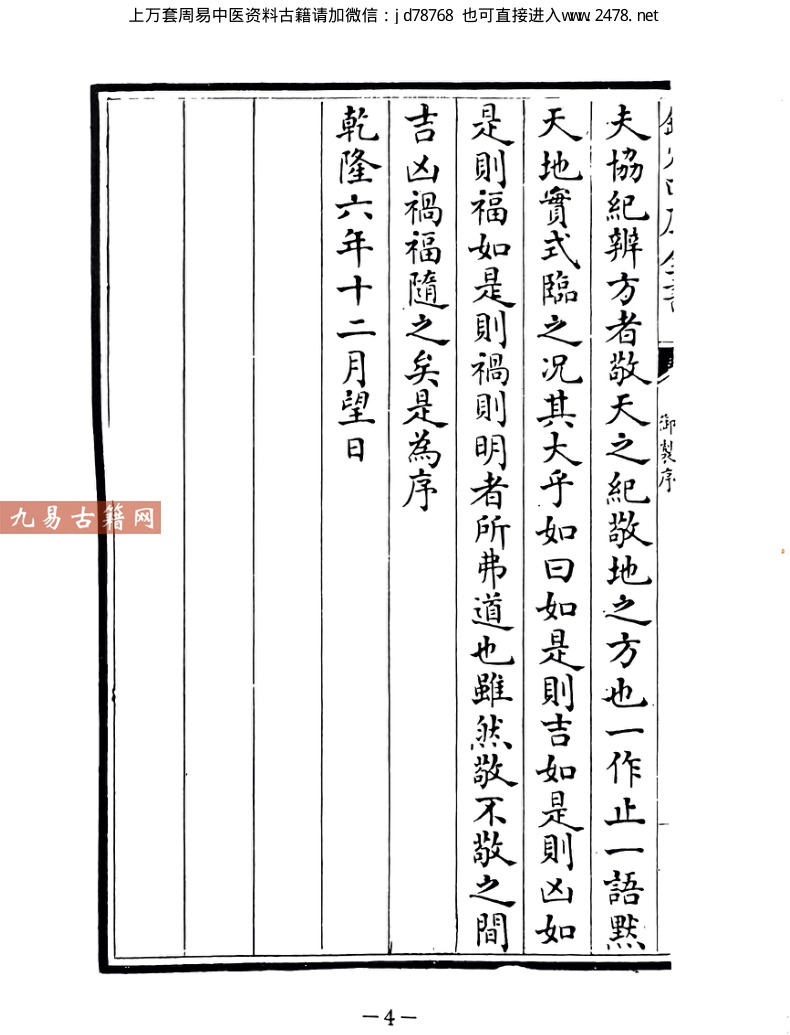 上万套周易中医资料古籍请加微信：jd78768 也可直接进入www.2478.net
御製序
夫協紀辨方者敬天之紀敬地之方也一作止一語默
天地實式臨之况其大乎如曰如是則吉如是則凶如
是則福如是則禍則明者所弗道也雖然敬不敬之間
吉凶禍福隨之矣是為序
乾隆六年十二月望日
九易古籍网
－4－